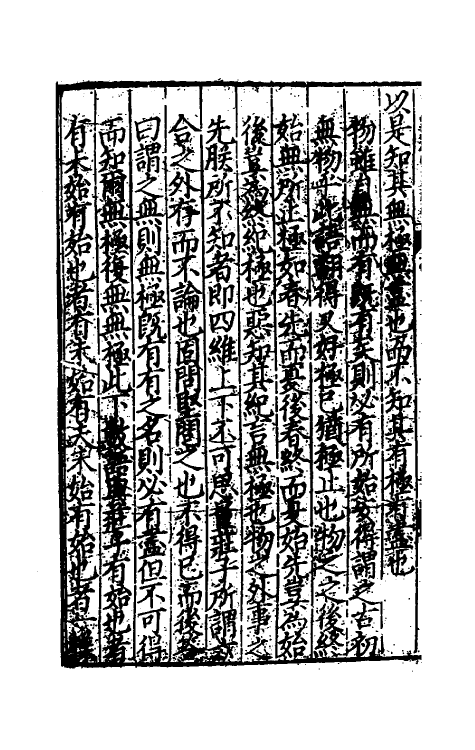 以是知其無極無盡也而不知其有極有盡也
物雖自無而有既有矣則必有所始安得謂之古初
無物乎此語翻得又好極已猶極止也物之之後終
始無所止極如春先而夏後春終而夏始先其為始
後其為終紀極也惡知其紀言無極也物之外事之
先朕所不知者即四維上下不可思量莊子所謂六
合之外存而不論也固問堅問之也不得已而後答
曰謂之無則無極既有有之名則必有盡但不可得
而知爾無極復無無極此下數語與莊子有始也者
有未始有始也者有未始有夫未始有始也者一樣